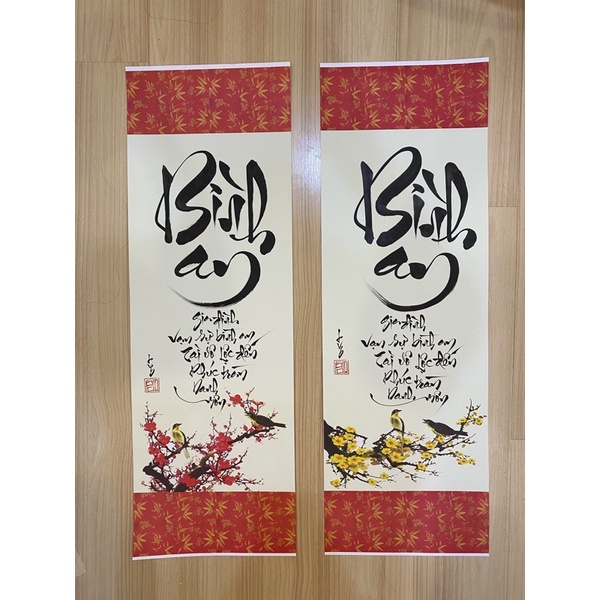 Bình
an
Gia đình
vạn sự bình an
Tài vô Lộc đến
Phúc tràn
Danh
viên
Bình
an
Gia đình
vạn sự bình an
Tài vô Lộc đến
Phúc tràn
Danh
viên